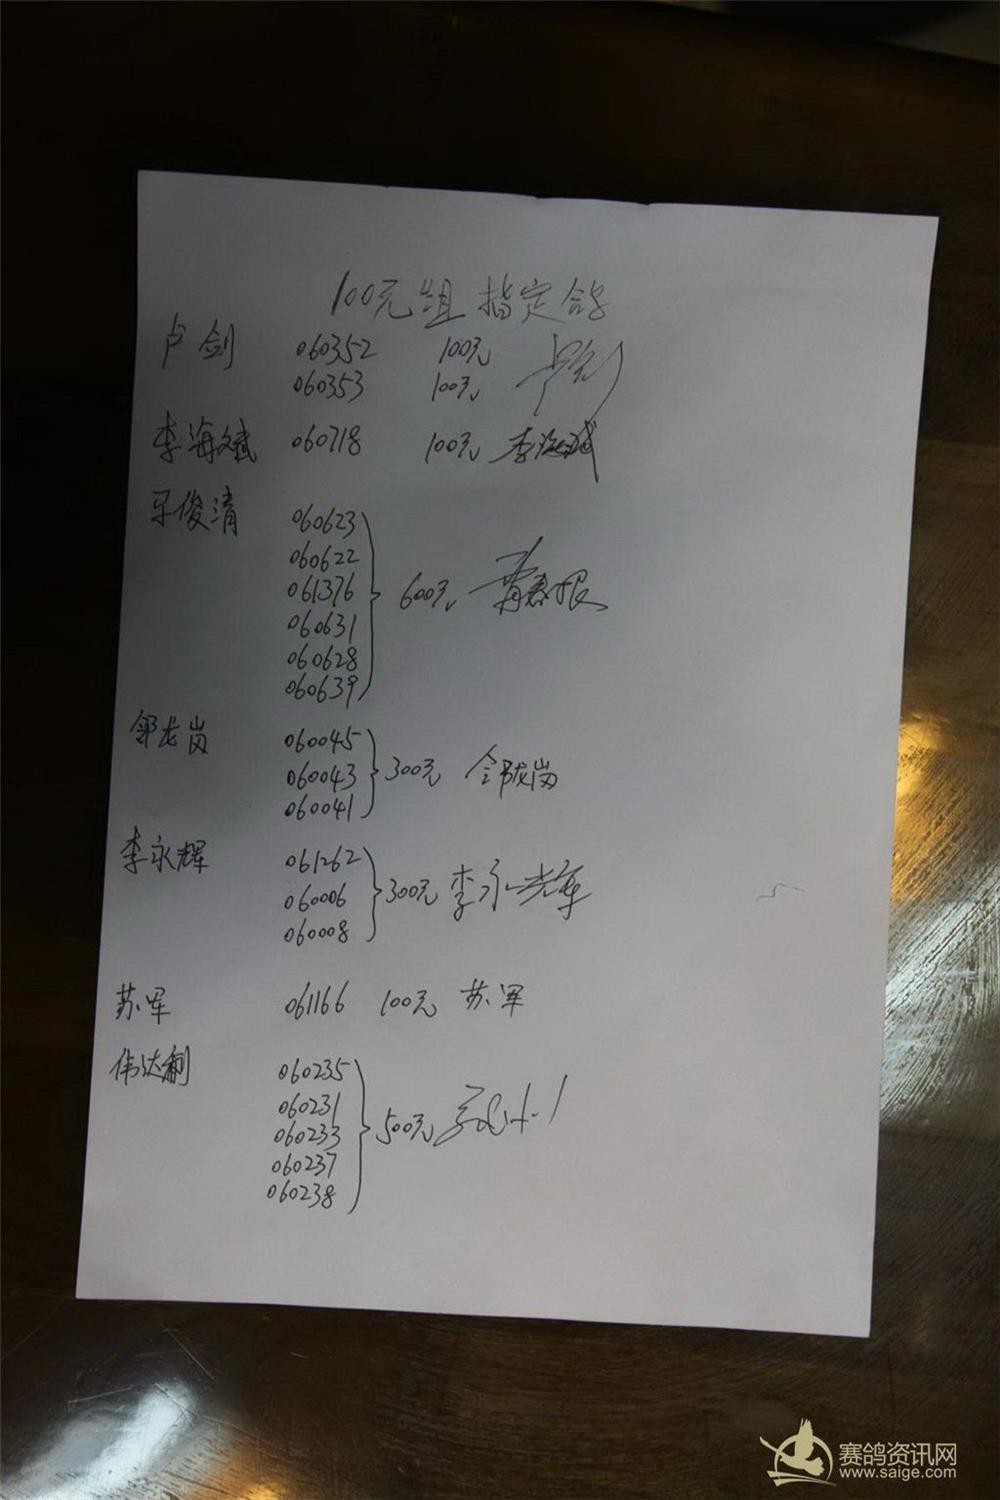 100元组 指定鸽
卢剑 060352 100元
060353 100元
李海斌 060718 100元 李海斌
俊清 060623
060622
061376 600元
060631
060628
060639
邬龙岗 060045
060043 300元 邬龙岗
060041
李永辉 061262
060006 300元 李永辉
060008
苏军 061166 100元 苏军
伟达利 060235
060231
060233 500元
060237
060238
赛鸽资讯网
www.saige.com